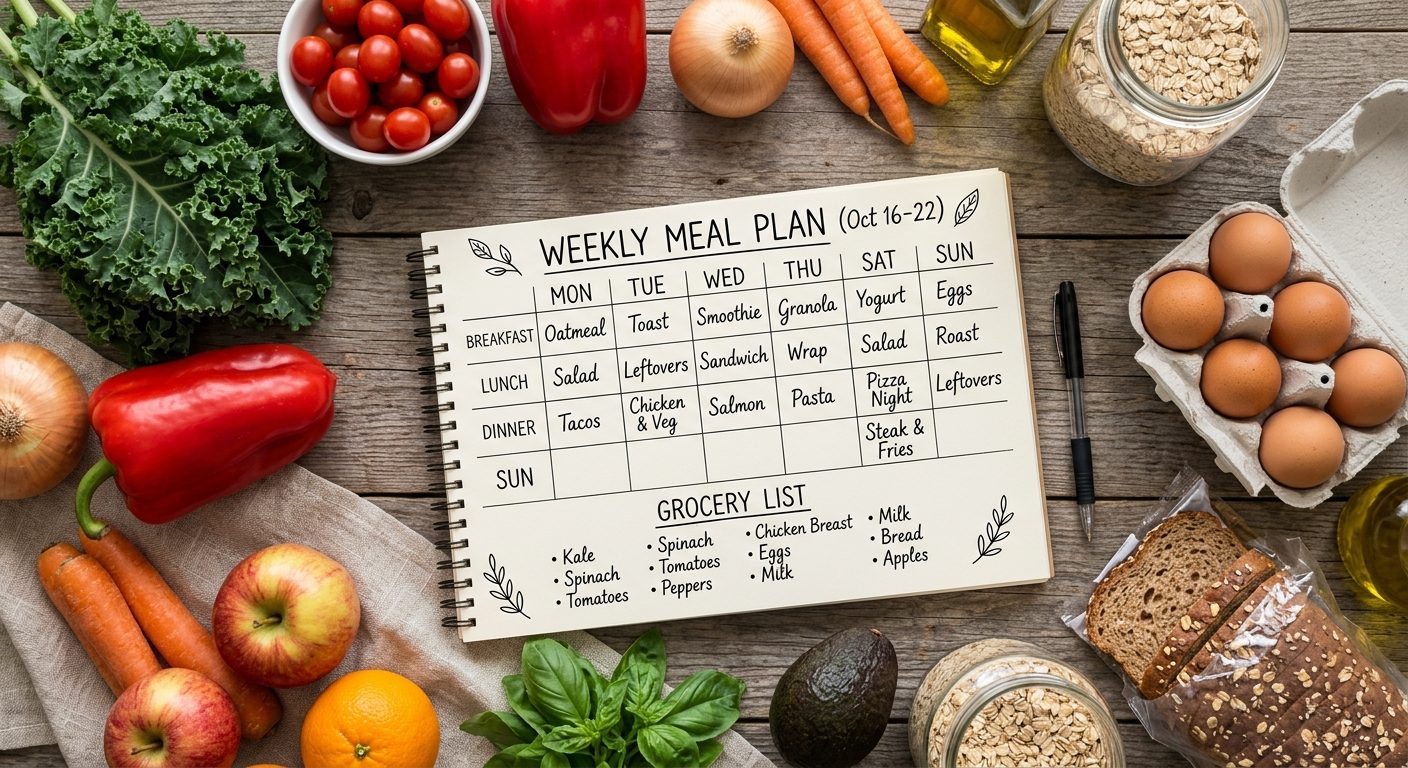 WEEKLY MEAL PLAN (Oct 16-22)
MON TUE WED THU SAT SUN
BREAKFAST Oatmeal Toast Smoothie Granola Yogurt Eggs
LUNCH Salad Leftovers Sandwich Wrap Salad Roast
DINNER Tacos Chicken & Veg Salmon Pasta Pizza Night Leftovers
SUN Steak & Fries
GROCERY LIST
• Kale
• Spinach
• Tomatoes
• Spinach
• Tomatoes
• Peppers
• Chicken Breast
• Eggs
• Milk
• Milk
• Bread
• Apples